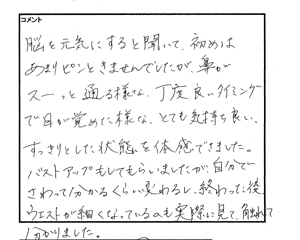 コメント
脳を元気にすると聞いて、初めは
あまりピンときませんでしたが、鼻が
スーっと通る様な、丁度良いタイミング
で目が覚めた様な、とても気持ち良い、
すっきりとした状態を体感できました。
バストアップもしてもらいましたが、自分で
さわって分かるくらい変わるし、終わった後
ウエストが細くなっているのも実際に見て、触れて
分かりました。